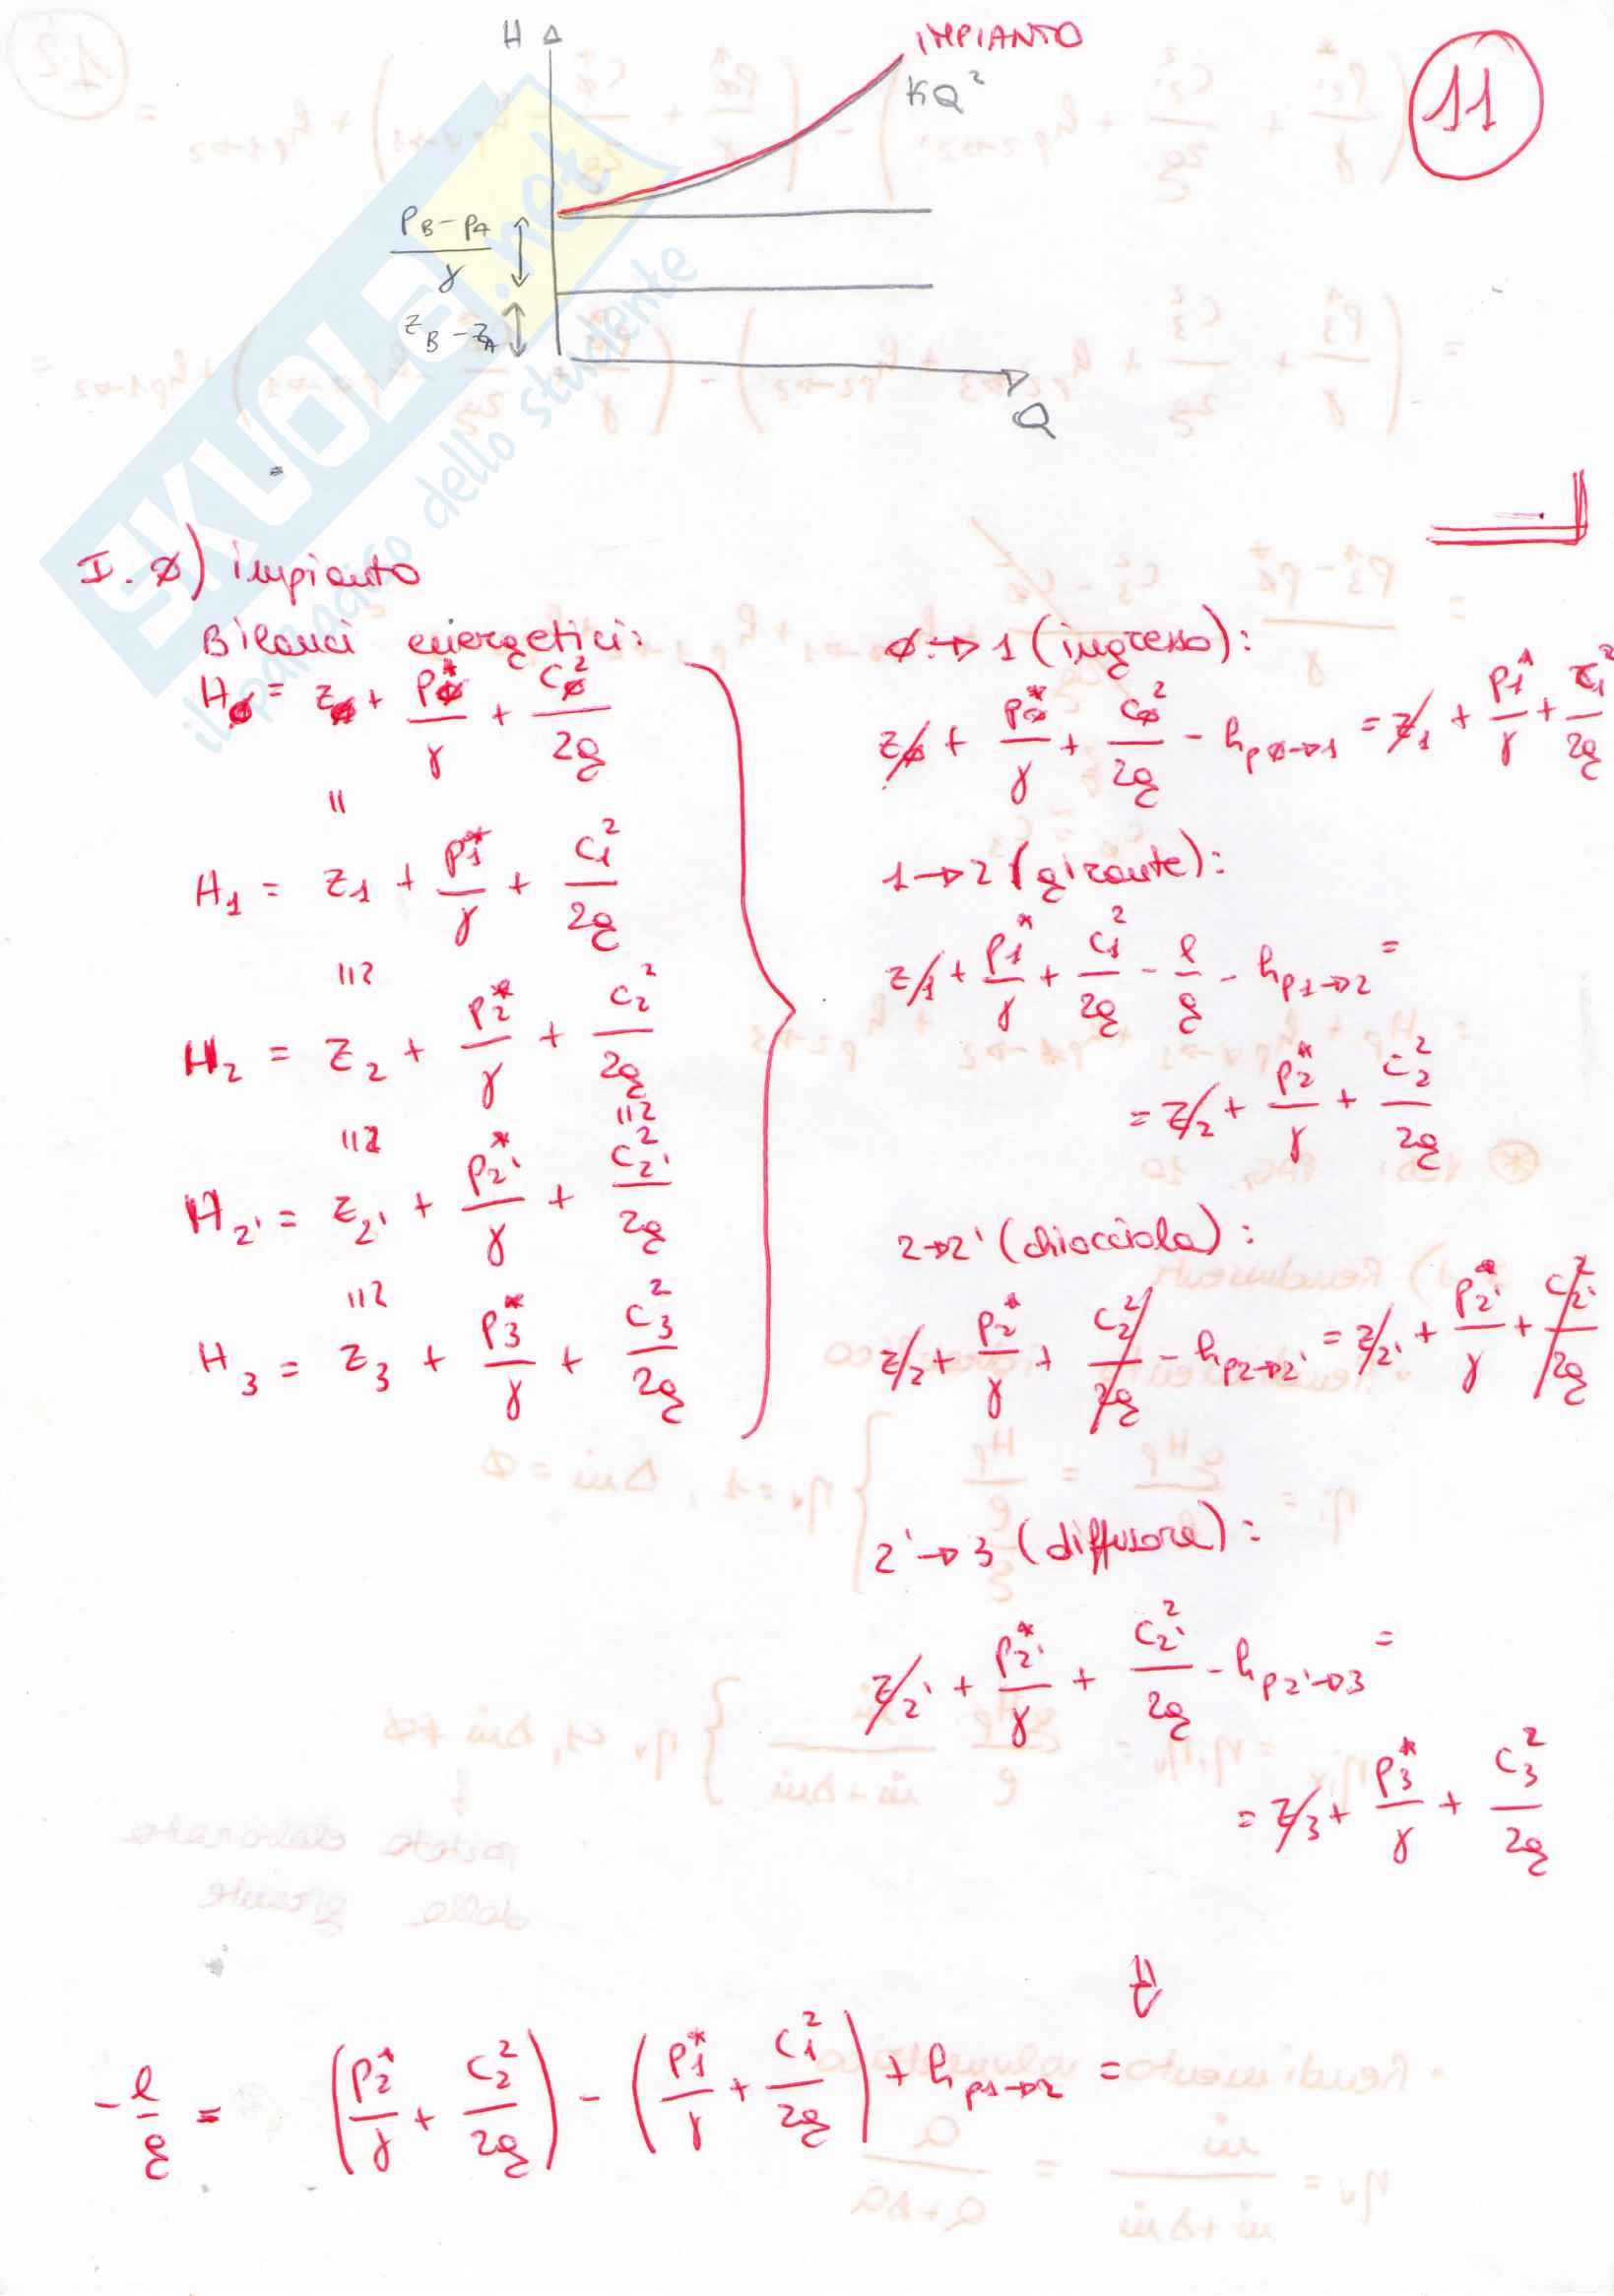 H
IMPIANTO
KQ²
11
(p_B - p_A)/γ
z_B - z_A
Q
SKUOLA.net
il paradiso dello studente
I.ø) impianto
Bilanci energetici:
H_ø = z_ø + p*_ø/γ + c_ø²/2g
=
H_1 = z_1 + p_1*/γ + c_1²/2g
≅
H_2 = z_2 + p_2*/γ + c_2²/2g
≅ ≅
H_2' = z_2' + p_2'*/γ + c_2'²/2g
≅
H_3 = z_3 + p_3*/γ + c_3²/2g
ø→1 (ingresso):
z_ø + p_ø*/γ + c_ø²/2g - h_pø→1 = z_1 + p_1*/γ + c_1²/2g
1→2 (girante):
z_1 + p_1*/γ + c_1²/2g - l/g - h_p1→2 =
= z_2 + p_2*/γ + c_2²/2g
2→2' (chiocciola):
z_2 + p_2*/γ + c_2²/2g - h_p2→2' = z_2' + p_2'*/γ + c_2'²/2g
2'→3 (diffusore):
z_2' + p_2'*/γ + c_2'²/2g - h_p2'→3 =
= z_3 + p_3*/γ + c_3²/2g
⇓
-l/g = (p_2*/γ + c_2²/2g) - (p_1*/γ + c_1²/2g) + h_p1→2 =